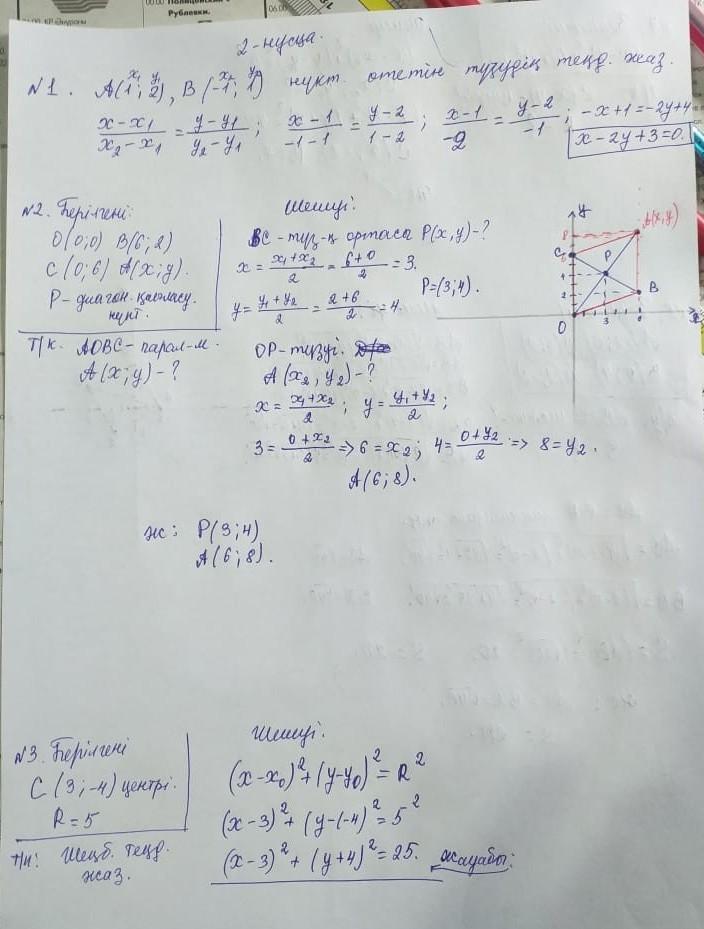 00.00
Рублевки.
06.00
2-нұсқа.
№1. A(1; 2), B(-1; 1) нүкт. өтетін түзудің теңд. жаз.
x₁ y₁ x₂ y₂
(x-x₁)/(x₂-x₁) = (y-y₁)/(y₂-y₁); (x-1)/(-1-1) = (y-2)/(1-2); (x-1)/(-2) = (y-2)/(-1); -x+1=-2y+4
x-2y+3=0.
№2. Берілгені:
O(0;0) B(6;2)
C(0;6) A(x;y).
P- диагон. қиылысу.
нүкт.
Т/к. AOBC- парал-м.
A(x;y)-?
Шешуі:
BC-түз-ң ортасы P(x,y)-?
x = (x₁+x₂)/2 = (6+0)/2 = 3.
P=(3;4).
y = (y₁+y₂)/2 = (2+6)/2 = 4.
OP-түзуі.
A(x₂, y₂)-?
x = (x₁+x₂)/2; y = (y₁+y₂)/2;
3 = (0+x₂)/2 => 6=x₂; 4 = (0+y₂)/2 => 8=y₂.
A(6;8).
y
A(x,y)
8
C
6
P
4
2
B
O
3
6
x
ж: P(3;4)
A(6;8).
№3. Берілгені
C(3;-4) центрі.
R=5
Т/к: Шеңб. теңд.
жаз.
Шешуі.
(x-x₀)²+(y-y₀)²=R²
(x-3)²+(y-(-4)²=5²
(x-3)²+(y+4)²=25. жауабы: